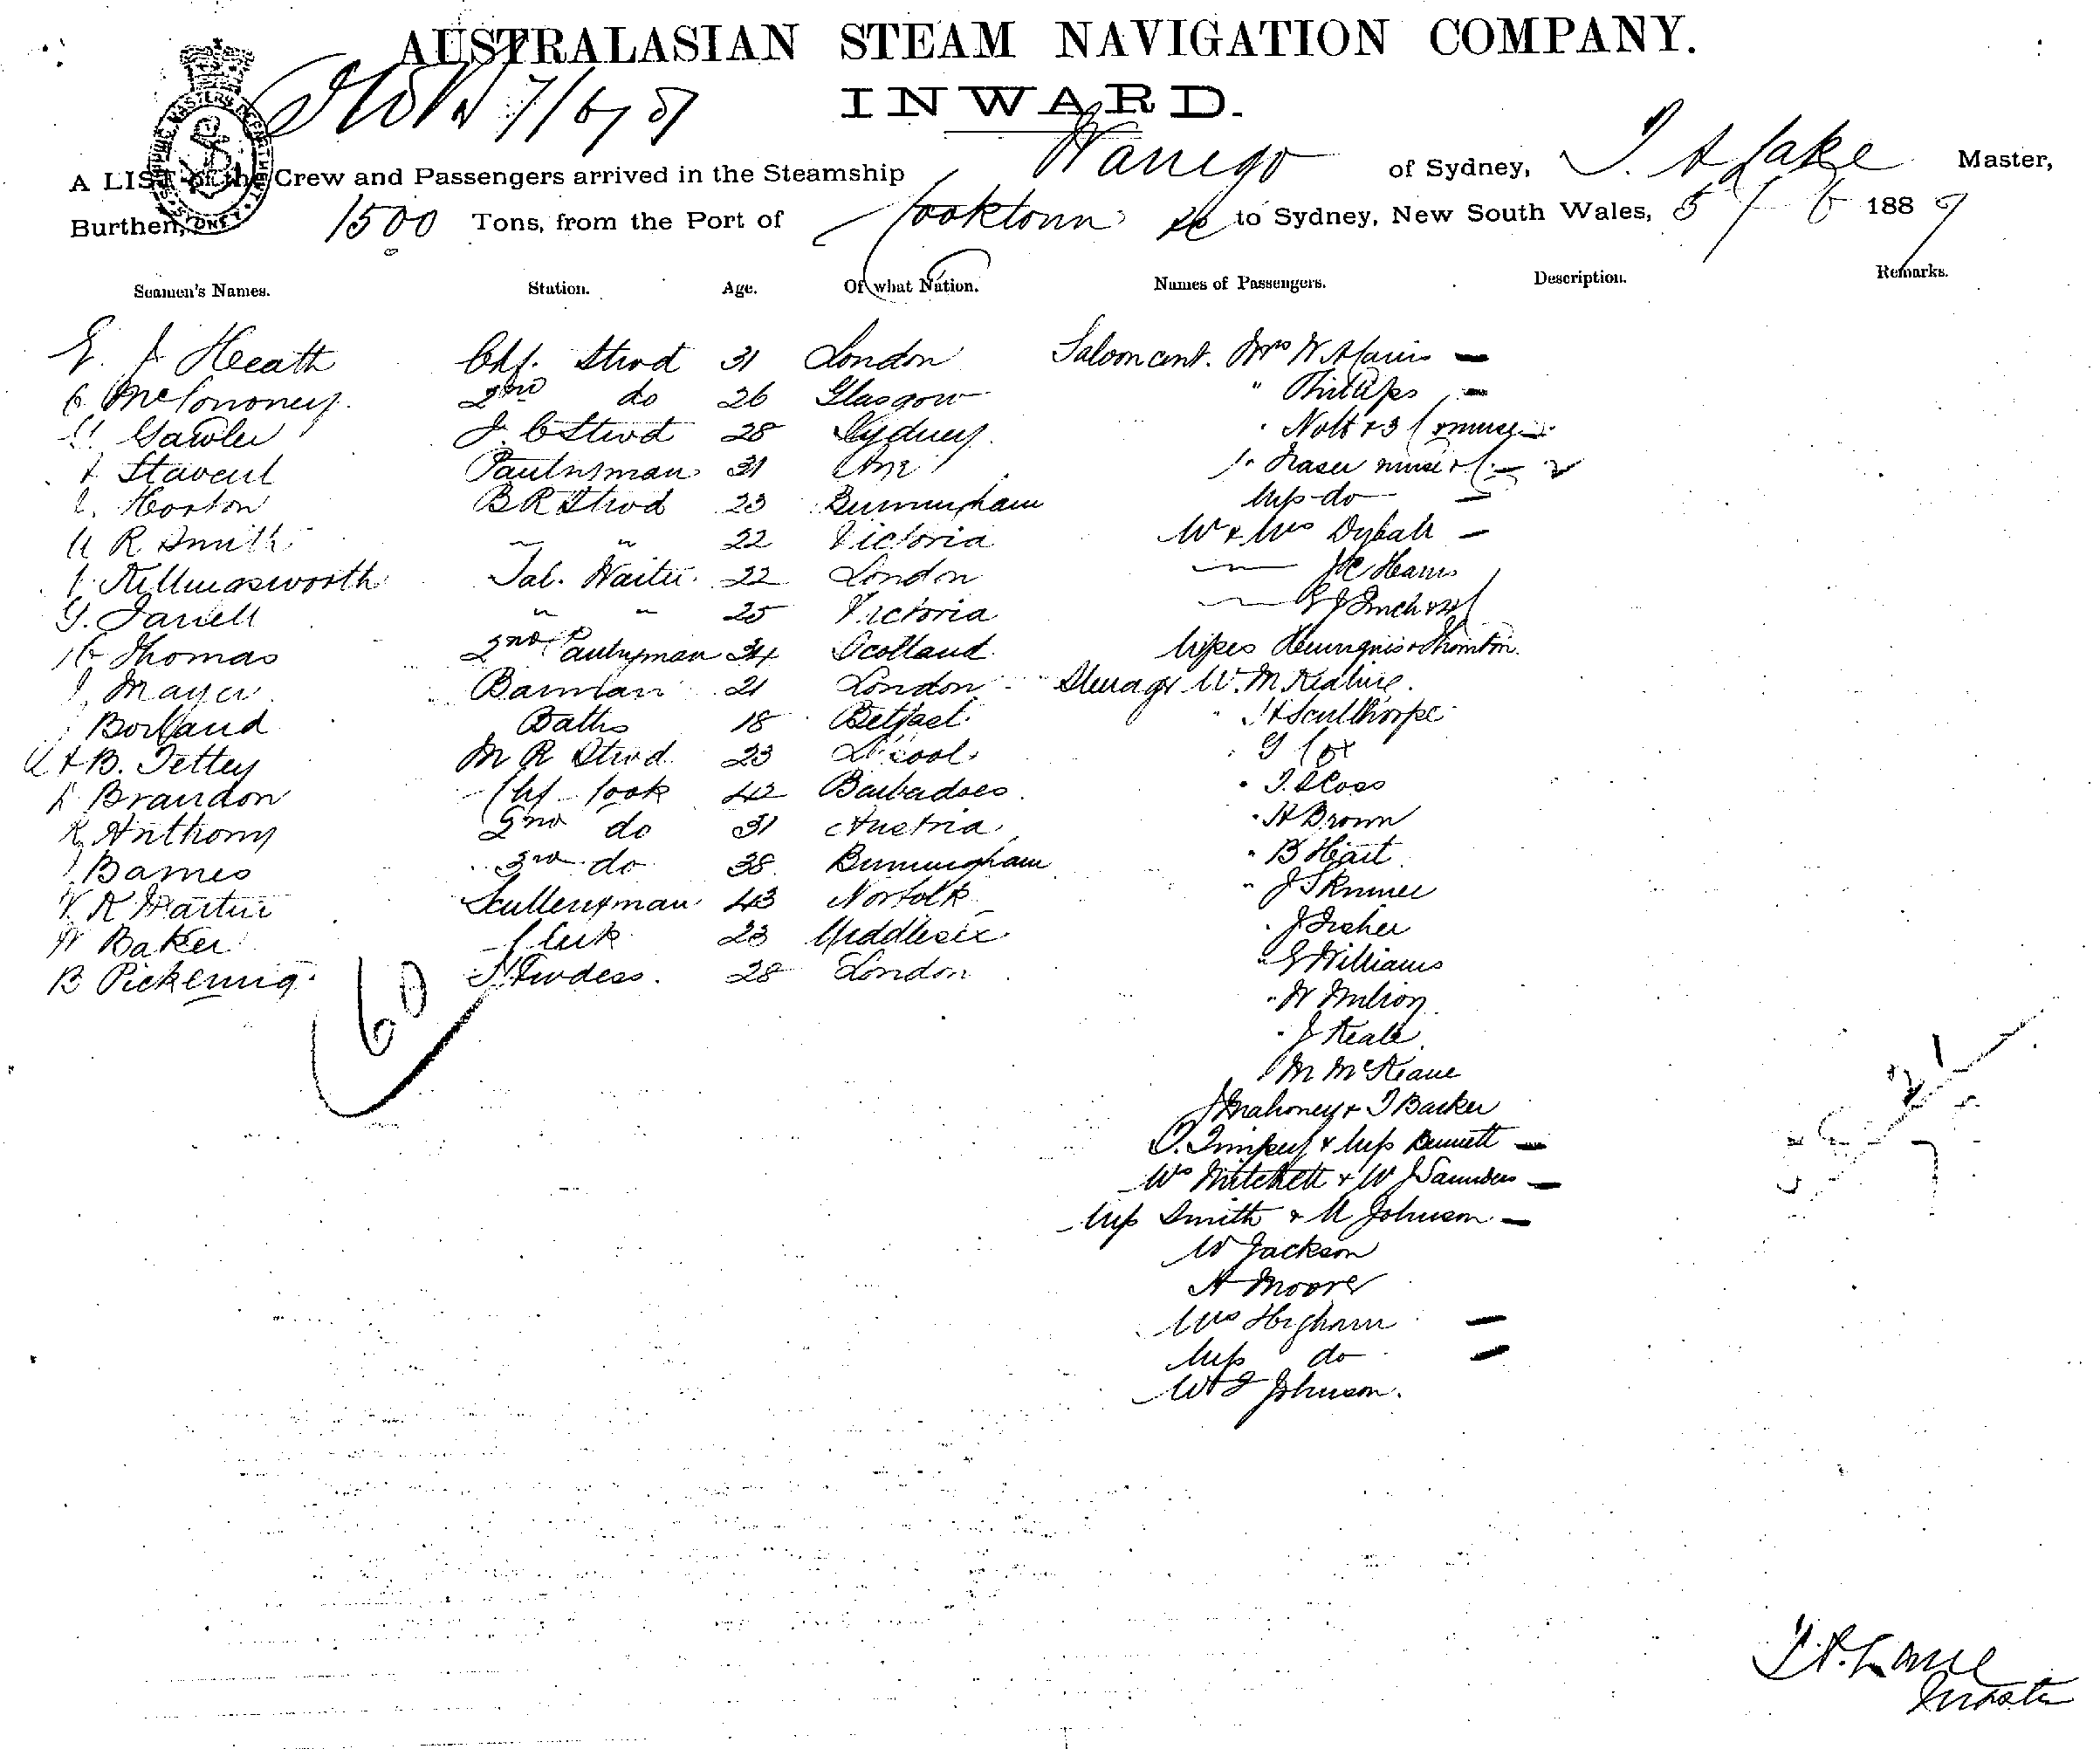 AUSTRALASIAN STEAM NAVIGATION COMPANY.
INWARD.
A LIST of the Crew and Passengers arrived in the Steamship Warrego of Sydney, T. A Lake Master,
Burthen, 1500 Tons, from the Port of Cooktown &c to Sydney, New South Wales, 5 / 6 1887
Seamen's Names. Station. Age. Of what Nation. Names of Passengers. Description. Remarks.
E. J Heath Chf. Stwd 31 London Saloon cont. Mrs
McCononey 2nd do 26 Glasgow " Phillips
Gawler Stwd 28 Sydney " Nott + 3 C + nurse
Pantryman 31 Fraser nurse +
Horton B R Stwd 23 Birmingham Miss do
R Smith " " 22 Victoria Mr + Mrs
Killingsworth Sal. Waiter 22 London
G. Farrell " " 25 Victoria
Thomas 2nd Pantryman 34 Scotland Misses + Thornton
Mayer Barman 21 London Steerage W. M
Borland Baths 18 Belfast Sculthorpe
B. Tettey M R Stwd 23 L'pool G Cox
Brandon Chf Cook 42 Barbadoes T. Ross
R Anthony 2nd do 31 Austria " A Brown
Barnes 3rd do 38 Birmingham " B Hart
R Martin Sculleryman 43 Norfolk " J Skinner
W Baker Clerk 23 Middlesex " J Fisher
B Pickering Stwdess. 28 London " G Williams
60
" W
" J Keale
M McKeane
J Mahoney + T Barker
+ Miss Bennett
Mrs Mitchell + W J Saunders
Miss Smith + M Johnson
W Jackson
A Moore
Mrs Higham
Miss do
W J Johnson.
Master